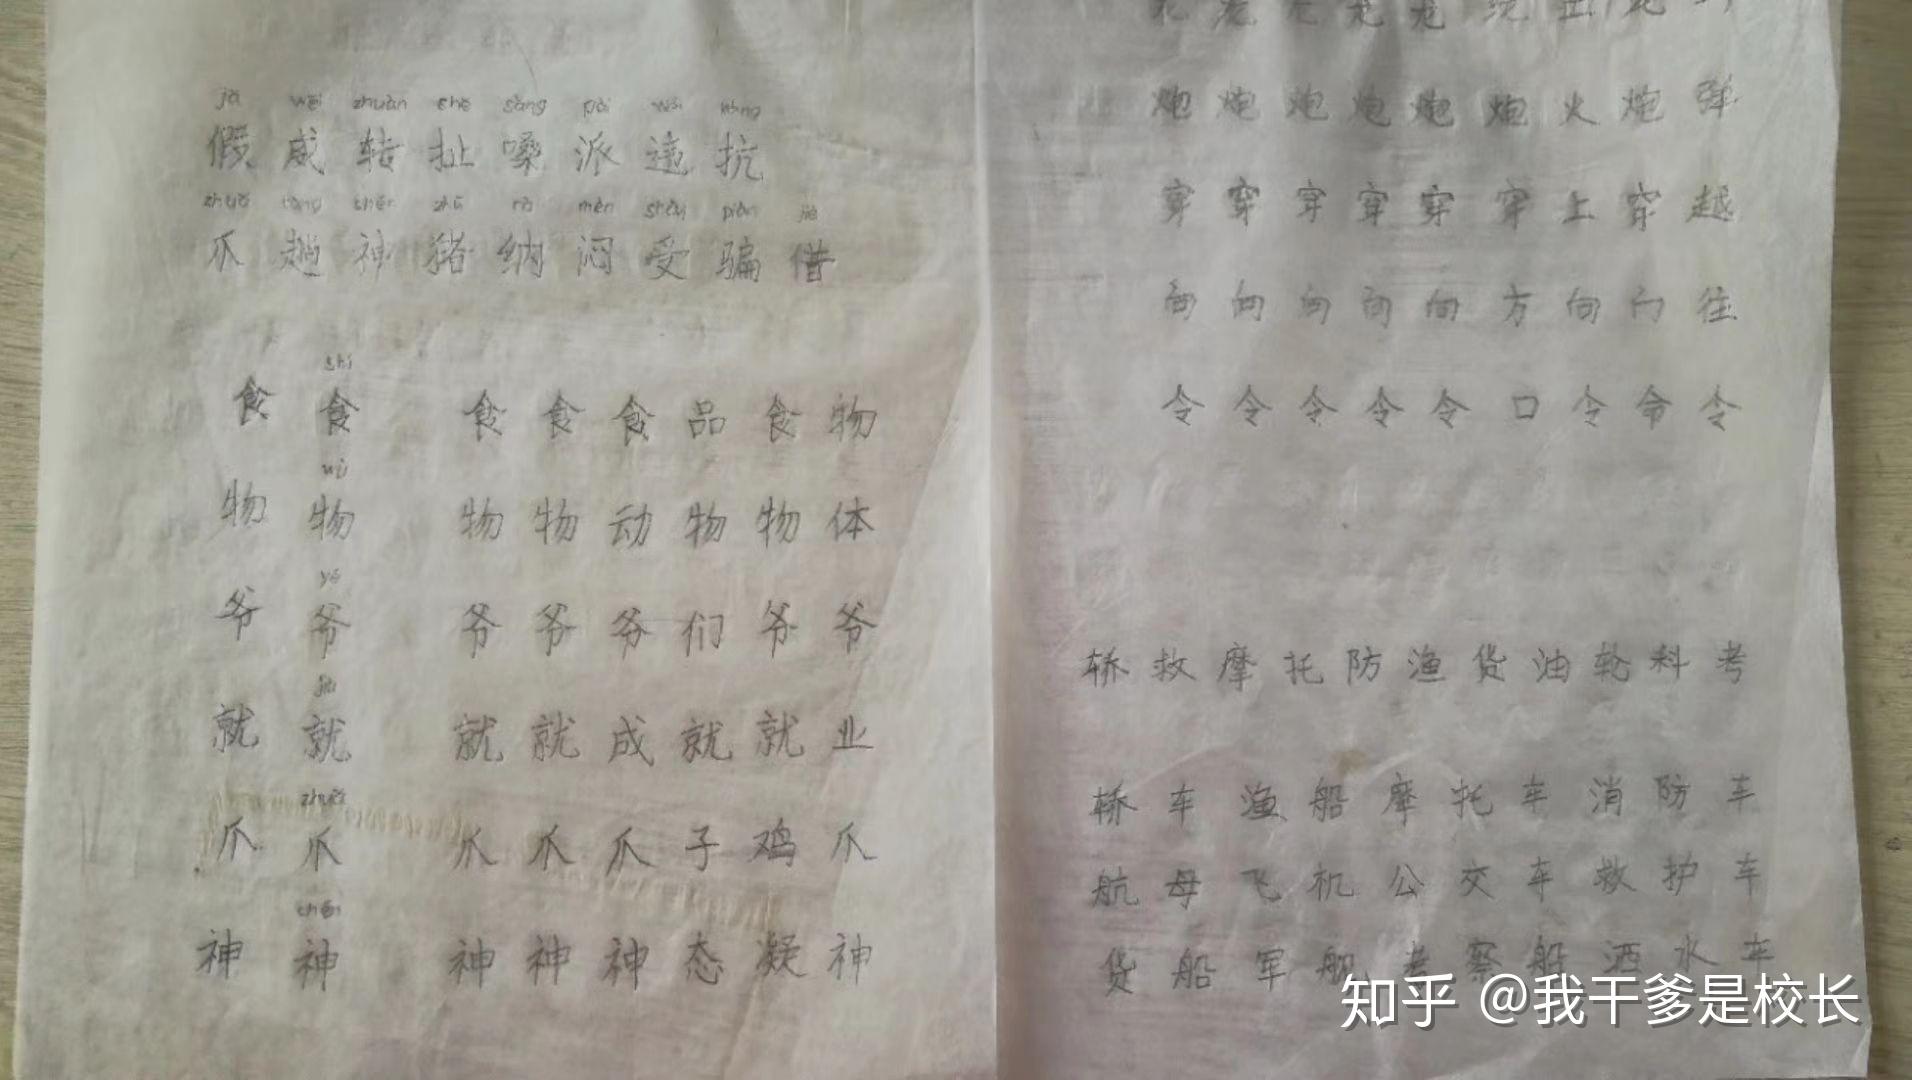 jiǎ wēi zhuàn chě sǎng pài wéi kàng
假 威 转 扯 嗓 派 违 抗
zhuǎ tàng shén zhū nà mèn shòu piàn jiè
爪 趟 神 猪 纳 闷 受 骗 借
shí
食 食 食 食 食 品 食 物
wù
物 物 物 物 动 物 物 体
yé
爷 爷 爷 爷 爷 们 爷 爷
jiù
就 就 就 就 成 就 就 业
zhuǎ
爪 爪 爪 爪 爪 子 鸡 爪
shén
神 神 神 神 神 态 凝 神
炮 炮 炮 炮 炮 炮 火 炮 弹
穿 穿 穿 穿 穿 穿 上 穿 越
向 向 向 向 向 方 向 向 往
令 令 令 令 令 口 令 命 令
轿 救 摩 托 防 渔 货 油 轮 科 考
轿 车 渔 船 摩 托 车 消 防 车
航 母 飞 机 公 交 车 救 护 车
货 船 军 舰 考 察 船 洒 水 车
知乎 @我干爹是校长